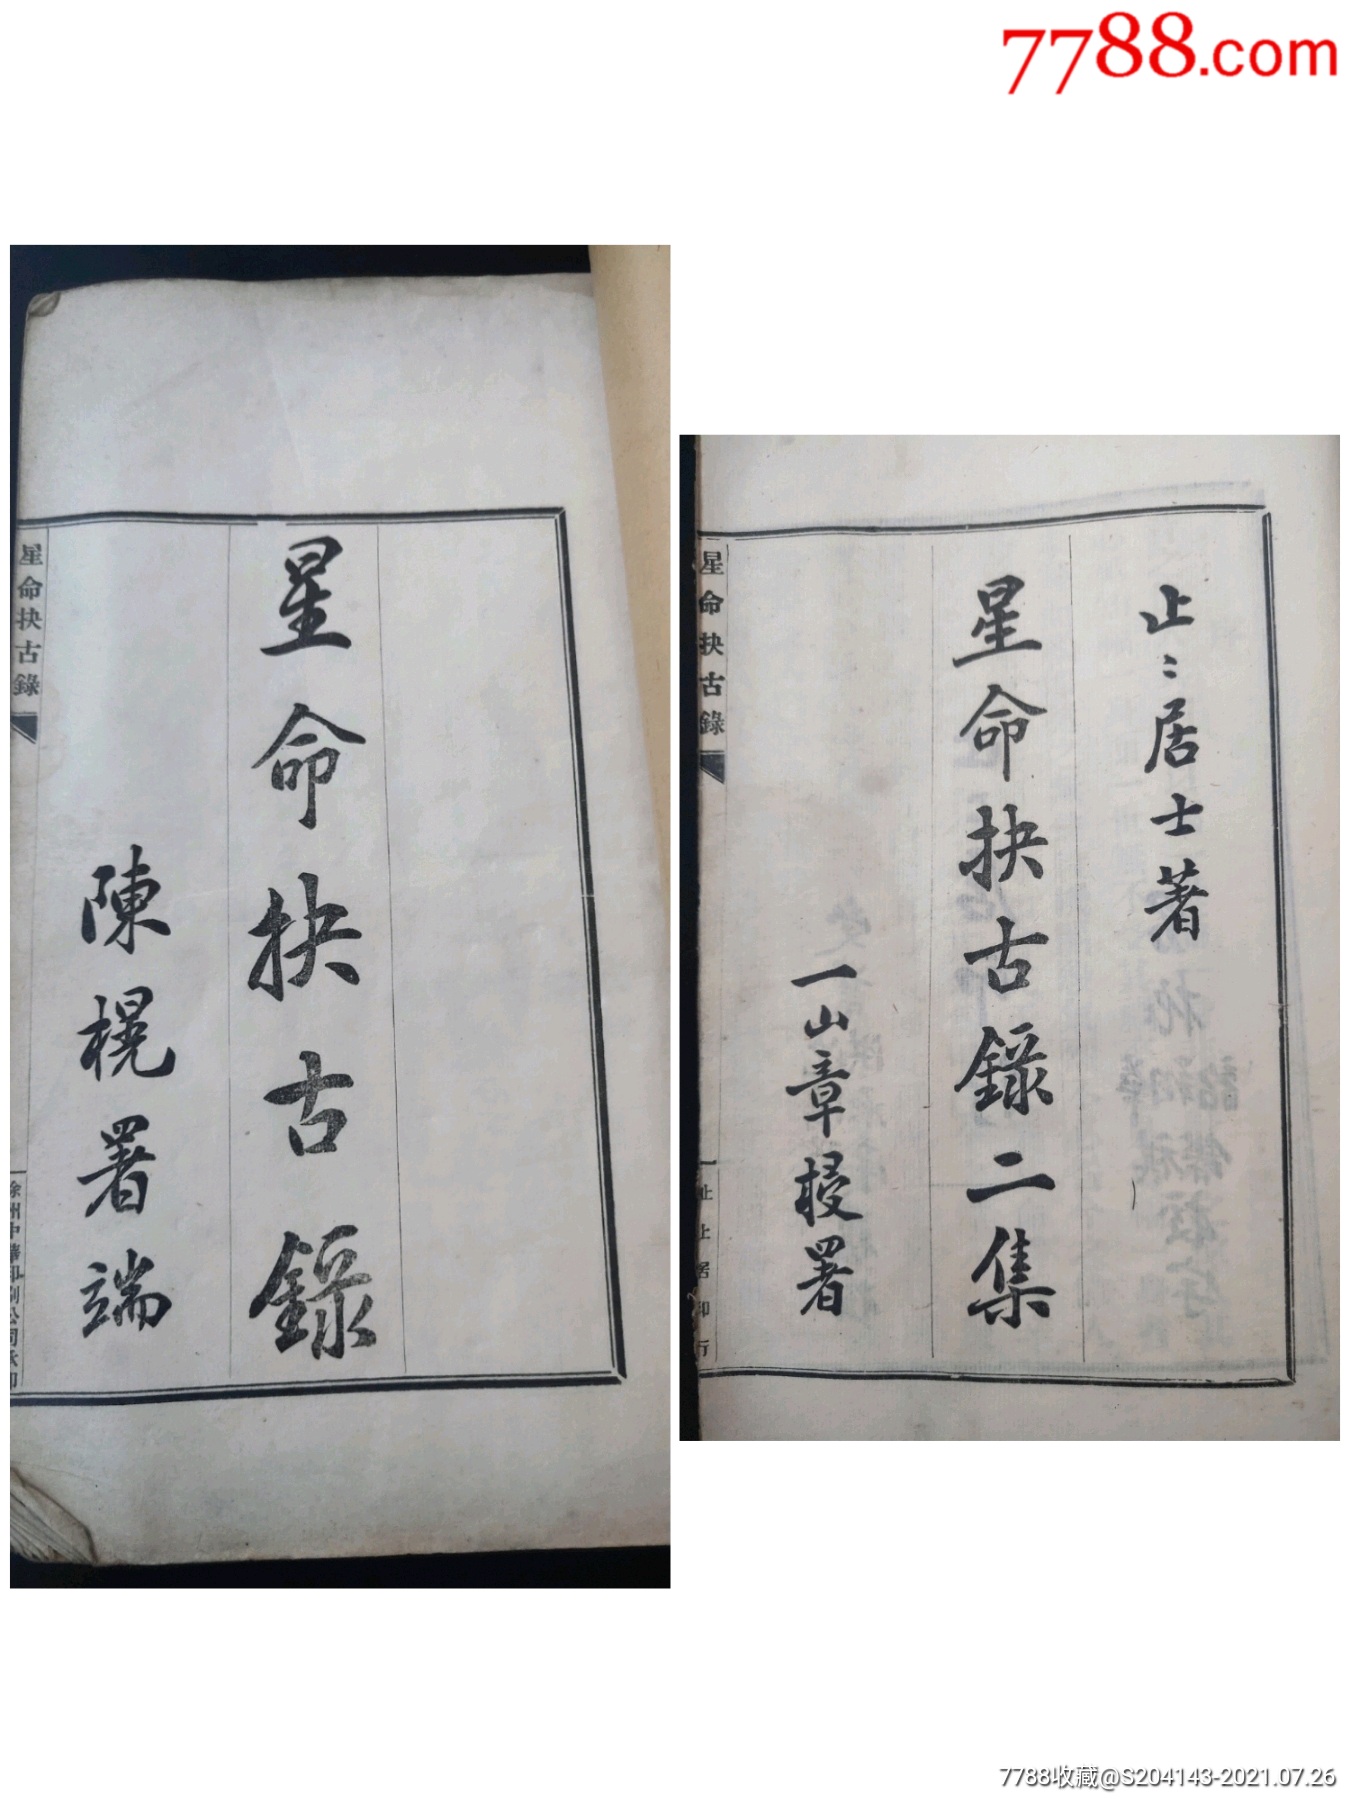 7788.com
星命抉古錄
陳榥署端
星命抉古錄
徐州中華印刷公司承印
止〻居士著
星命抉古錄二集
一山章梫署
星命抉古錄
止止居印行
7788收藏@S204143-2021.07.26